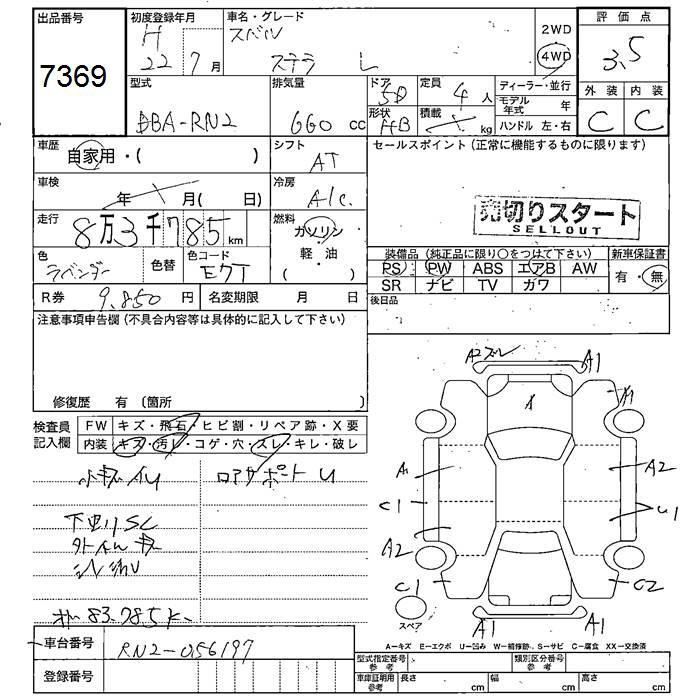 出品番号
7369
初度登録年月
H
22 7月
車名・グレード
スバル
ステラ L
2WD
4WD
評価点
3.5
外装 内装
C C
型式
DBA-RN2
排気量
660 cc
ドア
5D
形状
HB
定員
4人
積載
kg
ディーラー・並行
モデル年式 年
ハンドル 左・右
車歴
自家用・( )
シフト
AT
セールスポイント (正常に機能するものに限ります)
車検
年 月( 日)
冷房
A/C
売切りスタート
SELLOUT
走行
8万3千785 km
燃料
ガソリン
軽・油
色
ラベンダー
色替
色コード
E7T
装備品 (純正品に限り○をつけて下さい)
PS PW ABS エアB AW
SR ナビ TV ガワ
新車保証書
有・無
R券 9,850 円
名変期限 月 日
後日品
注意事項申告欄 (不具合内容等は具体的に記入して下さい)
修復歴 有 (箇所
検査員記入欄
FW キズ・飛石・ヒビ割・リペア跡・X要
内装 キズ・汚レ・コゲ・穴・スレ・キレ・破レ
小キズイU
ロアサポートU
下回りSC
83,785K
車台番号
RN2-056197
登録番号
A2ズレ
A1
A
A1
A1
A2
C1
U1
A2
C1
C2
A1
A1
スペア
A−キズ E−エクボ U−凹み W−補修跡 S−サビ C−腐食 XX−交換済
型式指定番号 参考
類別区分番号 参考
車庫証明用 参考
長さ cm
幅 cm
高さ cm